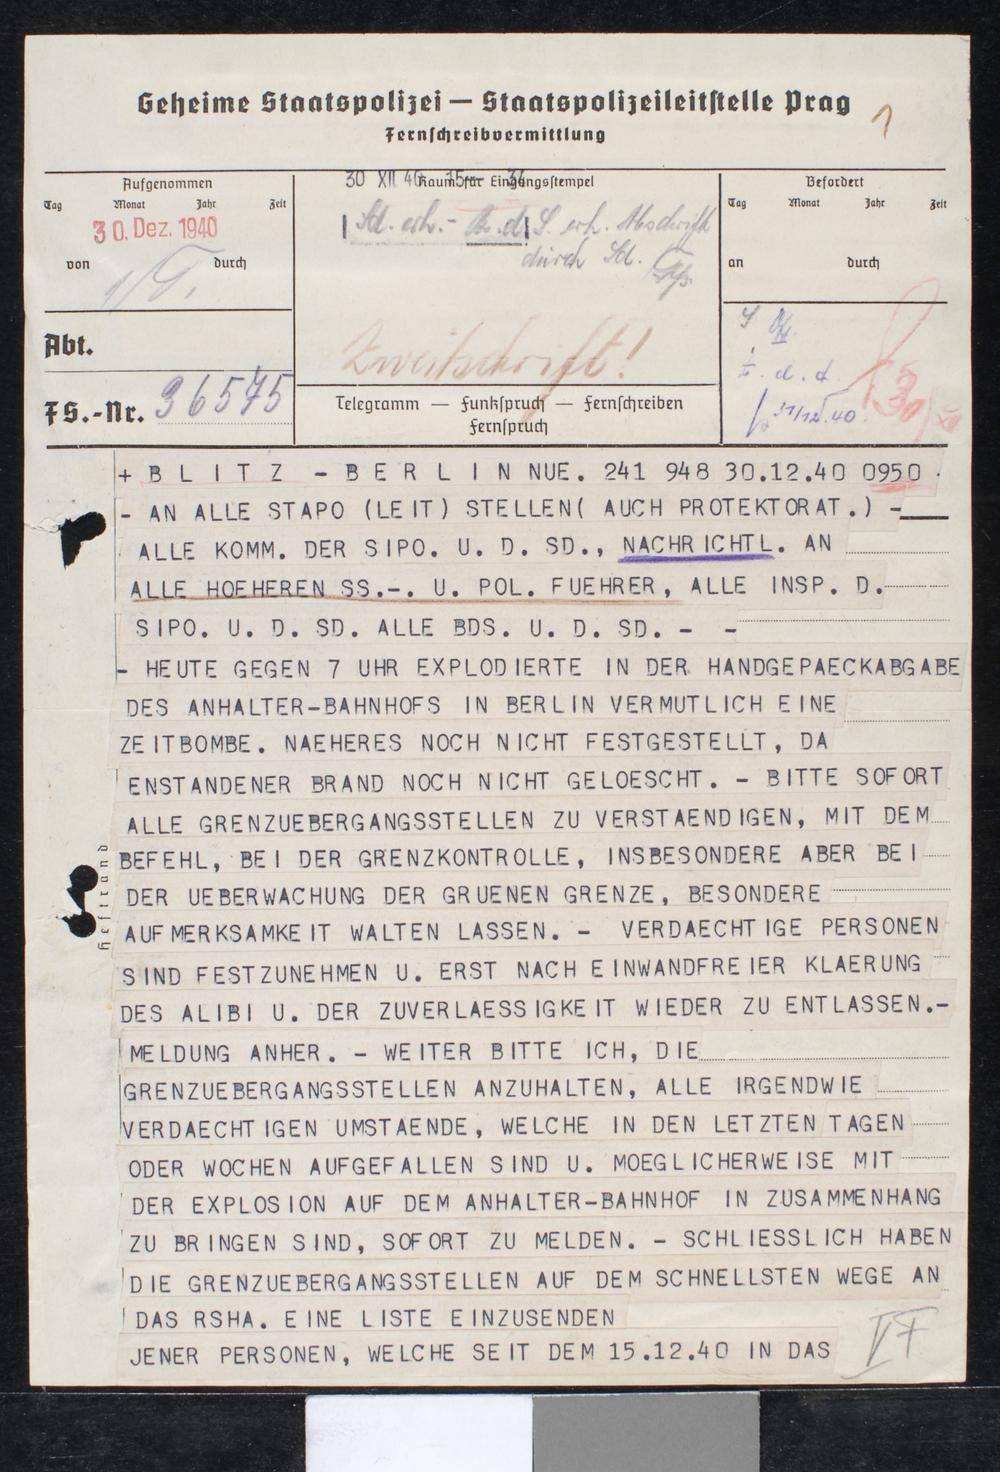 Geheime Staatspolizei — Staatspolizeileitstelle Prag
1
Fernschreibvermittlung
Aufgenommen
Tag Monat Jahr Zeit
30. Dez. 1940
von durch
Abt.
FS.-Nr. 36575
30 XII 40 15
Raum für Eingangsstempel
Sd. erh. - B.d.S. erh. Abschrift
durch Sd.
Zweitschrift!
Telegramm — Funkspruch — Fernschreiben
Fernspruch
Befördert
Tag Monat Jahr Zeit
an durch
z. d. A.
31/12.40
+ B L I T Z - B E R L I N NUE. 241 948 30.12.40 0950 .
- AN ALLE STAPO (LEIT) STELLEN( AUCH PROTEKTORAT.) -
ALLE KOMM. DER SIPO. U. D. SD., NACHRICHTL. AN
ALLE HOEHEREN SS.-. U. POL. FUEHRER, ALLE INSP. D.
SIPO. U. D. SD. ALLE BDS. U. D. SD. - -
- HEUTE GEGEN 7 UHR EXPLODIERTE IN DER HANDGEPAECKABGABE
DES ANHALTER-BAHNHOFS IN BERLIN VERMUTLICH EINE
ZEITBOMBE. NAEHERES NOCH NICHT FESTGESTELLT, DA
ENSTANDENER BRAND NOCH NICHT GELOESCHT. - BITTE SOFORT
ALLE GRENZUEBERGANGSSTELLEN ZU VERSTAENDIGEN, MIT DEM
BEFEHL, BEI DER GRENZKONTROLLE, INSBESONDERE ABER BEI
DER UEBERWACHUNG DER GRUENEN GRENZE, BESONDERE
AUFMERKSAMKEIT WALTEN LASSEN. - VERDAECHTIGE PERSONEN
SIND FESTZUNEHMEN U. ERST NACH EINWANDFREIER KLAERUNG
DES ALIBI U. DER ZUVERLAESSIGKEIT WIEDER ZU ENTLASSEN.-
MELDUNG ANHER. - WEITER BITTE ICH, DIE
GRENZUEBERGANGSSTELLEN ANZUHALTEN, ALLE IRGENDWIE
VERDAECHTIGEN UMSTAENDE, WELCHE IN DEN LETZTEN TAGEN
ODER WOCHEN AUFGEFALLEN SIND U. MOEGLICHERWEISE MIT
DER EXPLOSION AUF DEM ANHALTER-BAHNHOF IN ZUSAMMENHANG
ZU BRINGEN SIND, SOFORT ZU MELDEN. - SCHLIESSLICH HABEN
DIE GRENZUEBERGANGSSTELLEN AUF DEM SCHNELLSTEN WEGE AN
DAS RSHA. EINE LISTE EINZUSENDEN
JENER PERSONEN, WELCHE SEIT DEM 15.12.40 IN DAS
Heftrand